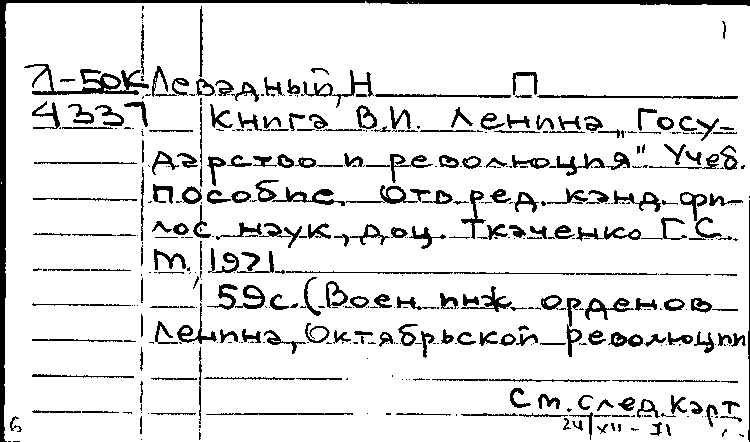 1
Л-50К Левадный, Н П
4337 Книга В.И. Ленина „Госу-
дарство и революция". Учеб.
пособие. Отв. ред. канд. фи-
лос. наук, доц. Ткаченко Г.С.
М. 1971.
59с. (Воен. инж. орденов
Ленина, Октябрьской революции
См. след. карт.
24/XII-71
6